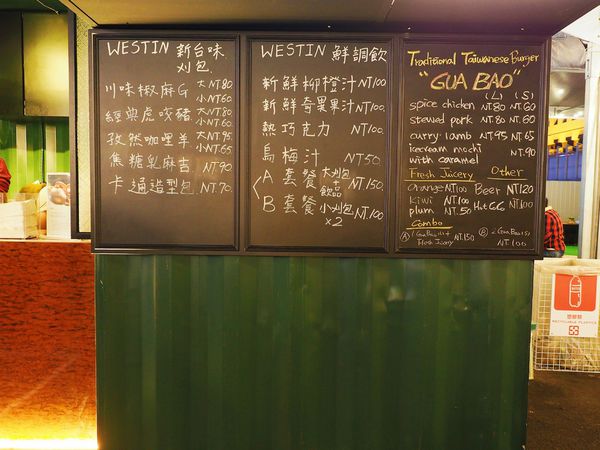 WESTIN 新台味
刈包
川味椒麻G 大NT80
小NT60
經典虎咬豬 大NT80
小NT60
孜然咖哩羊 大NT95
小NT65
焦糖乳麻吉 NT90
卡通造型包 NT.70
WESTIN 鮮調飲
新鮮柳橙汁 NT100
新鮮奇異果汁 NT100
熱巧克力 NT100.
烏梅汁 NT50.
A 套餐 大刈包
飲品 NT150
B 套餐 小刈包
x2 NT100
Traditional Taiwanese Burger
"GUA BAO"
(L) (S)
spice chicken NT.80 NT.60
stewed pork NT.80 NT.60
curry lamb NT.95 NT.65
icecream mochi
with caramel NT.90
Fresh Juicery Other
Orange NT100 Beer NT120
kiwi NT100 Hot CC NT.100
plum NT.50
Combo
Ⓐ 1 Gua Bao(L)+
Fresh Juicery NT.150
Ⓑ 2 Gua Bao(S)
NT.100
塑膠類
RECYCLABLE PLASTICS